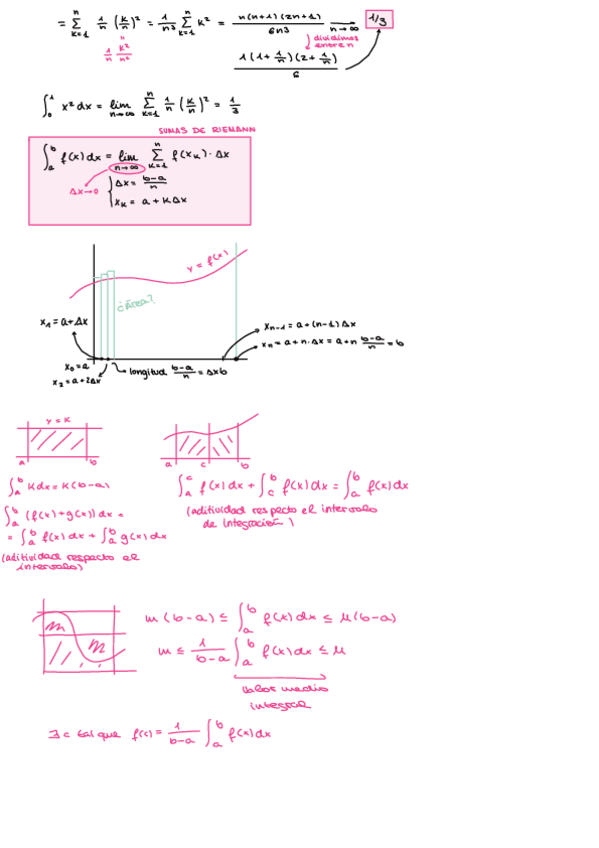 = \sum_{k=1}^{n} \frac{1}{n} \left(\frac{k}{n}\right)^2 = \frac{1}{n^3} \sum_{k=1}^{n} k^2 = \frac{n(n+1)(2n+1)}{6n3} \xrightarrow[n→∞]{} 1/3
\frac{1}{n} \frac{k^2}{n^2}
dividimos
entre n
\frac{1(1+\frac{1}{n})(2+\frac{1}{n})}{6}
\int_0^1 x^2 dx = \lim_{n→∞} \sum_{k=1}^{n} \frac{1}{n} \left(\frac{k}{n}\right)^2 = \frac{1}{3}
SUMAS DE RIEMANN
\int_a^b f(x) dx = \lim_{n→∞} \sum_{k=1}^{n} f(x_k) · Δx
Δx→0
Δx = \frac{b-a}{n}
x_k = a + kΔx
y = f(x)
¿área?
x_1 = a+Δx
x_{n-1} = a+(n-1)Δx
x_n = a+n·Δx = a+n \frac{b-a}{n} = b
x_0 = a
x_2 = a+2Δx
longitud \frac{b-a}{n} = Δxb
y = k
a b
a c b
\int_a^b kdx = k(b-a)
\int_a^c f(x)dx + \int_c^b f(x)dx = \int_a^b f(x)dx
(aditividad respecto el intervalo
de integración)
\int_a^b (f(x)+g(x))dx =
= \int_a^b f(x)dx + \int_a^b g(x)dx
(aditividad respecto el
intervalo)
m
m
m(b-a) ≤ \int_a^b f(x)dx ≤ μ(b-a)
m ≤ \frac{1}{b-a} \int_a^b f(x)dx ≤ μ
valor medio
integral
∃ c tal que f(c) = \frac{1}{b-a} \int_a^b f(x)dx